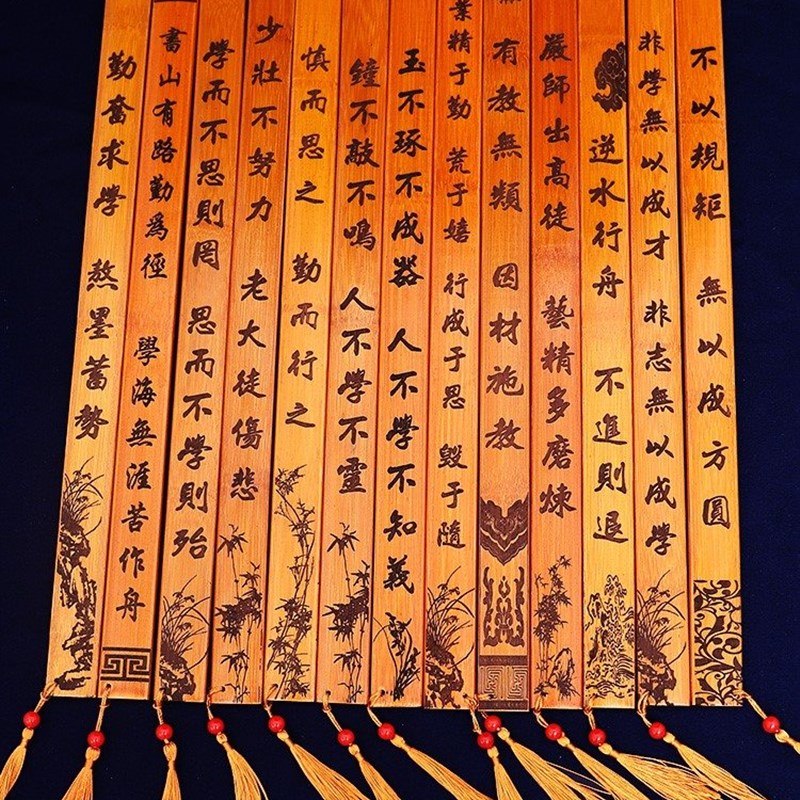 不以規矩 無以成方圓
非學無以成才 非志無以成學
逆水行舟 不進則退
嚴師出高徒 藝精多磨煉
有教無類 因材施教
業精于勤 荒于嬉 行成于思 毀于隨
玉不琢不成器 人不學不知義
鐘不敲不鳴 人不學不靈
慎而思之 勤而行之
少壯不努力 老大徒傷悲
學而不思則罔 思而不學則殆
書山有路勤爲徑 學海無涯苦作舟
勤奮求學 熬墨蓄勢